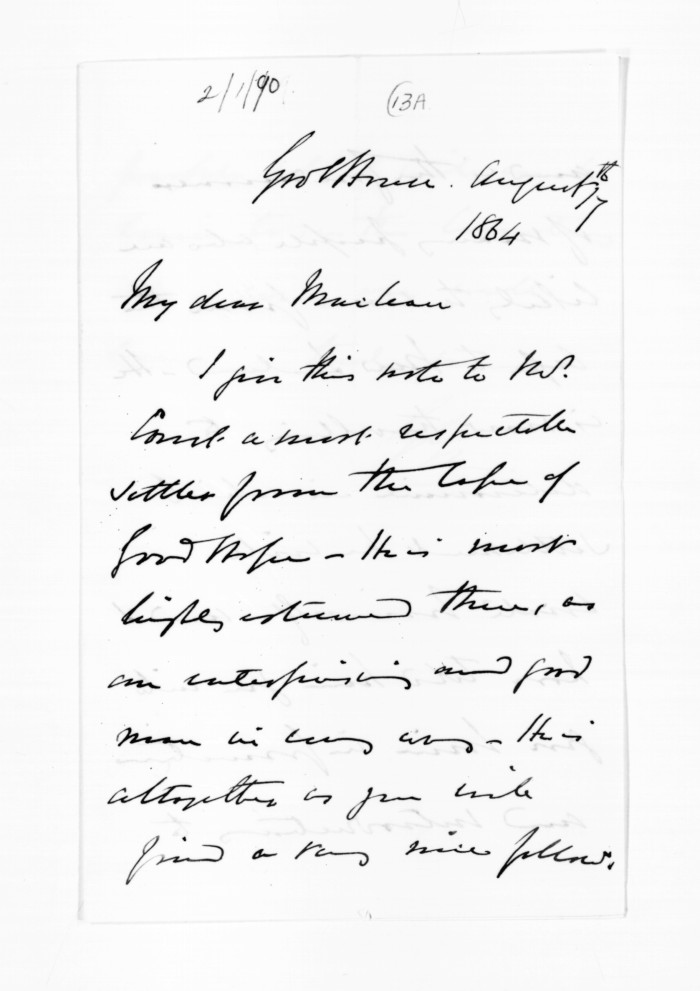 2/1/90
13A
Govt House. August 17th
1864
My dear Maclean
I give this note to Mr.
a most respectable
settler from the Cape of
Good Hope - He is most
highly esteemed there, as
an enterprising and good
man in every way - He is
altogether as you will
find a very nice fellow.